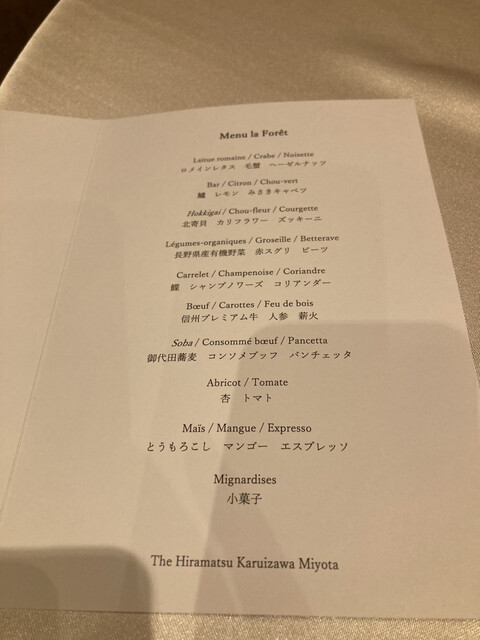 Menu la Forêt
Laitue romaine / Crabe / Noisette
ロメインレタス 毛蟹 ヘーゼルナッツ
Bar / Citron / Chou-vert
鱸 レモン みさきキャベツ
Hokkigai / Chou-fleur / Courgette
北寄貝 カリフラワー ズッキーニ
Légumes-organiques / Groseille / Betterave
長野県産有機野菜 赤スグリ ビーツ
Carrelet / Champenoise / Coriandre
鰈 シャンプノワーズ コリアンダー
Bœuf / Carottes / Feu de bois
信州プレミアム牛 人参 薪火
Soba / Consommé bœuf / Pancetta
御代田蕎麦 コンソメブッフ パンチェッタ
Abricot / Tomate
杏 トマト
Maïs / Mangue / Expresso
とうもろこし マンゴー エスプレッソ
Mignardises
小菓子
The Hiramatsu Karuizawa Miyota